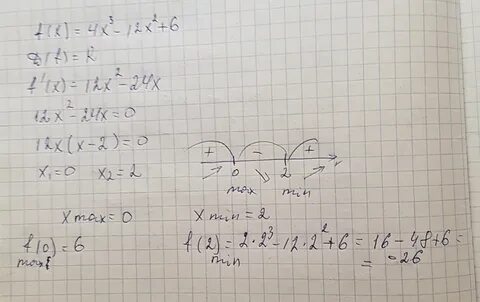 f(x) = 4x³ - 12x² + 6
D(f) = R
f'(x) = 12x² - 24x
12x² - 24x = 0
12x(x - 2) = 0
x₁ = 0 x₂ = 2
+ - +
0 2
max min
x max = 0 x min = 2
f(0) = 6 f(2) = 2·2³ - 12·2² + 6 = 16 - 48 + 6 =
max min = -26